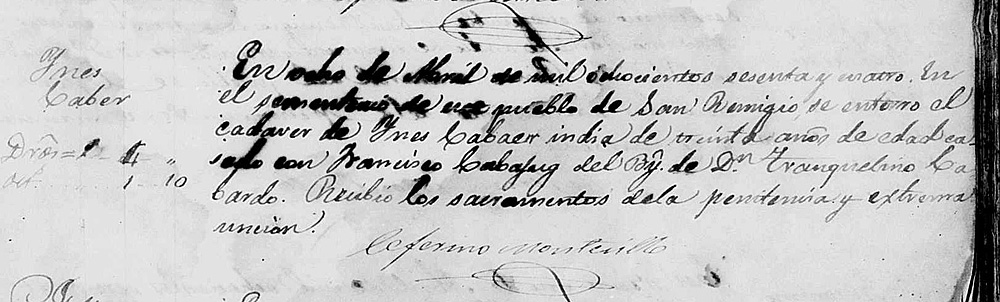 Ynes
Caber
Dros = 1 - 4 - "
Oct. " 1 - 10
En ocho de Abril de mil ochocientos sesenta y cuatro. En
el sementerio de ese pueblo de San Remigio, se enterro el
cadaver de Ynes Cabaer india de treinta años de edad ca-
sado con Francisco Cabajug del By. de Dn. Tranquelino Ca
bardo. Recibio los sacramentos dela penitencia y extrema
uncion.
Ceferino